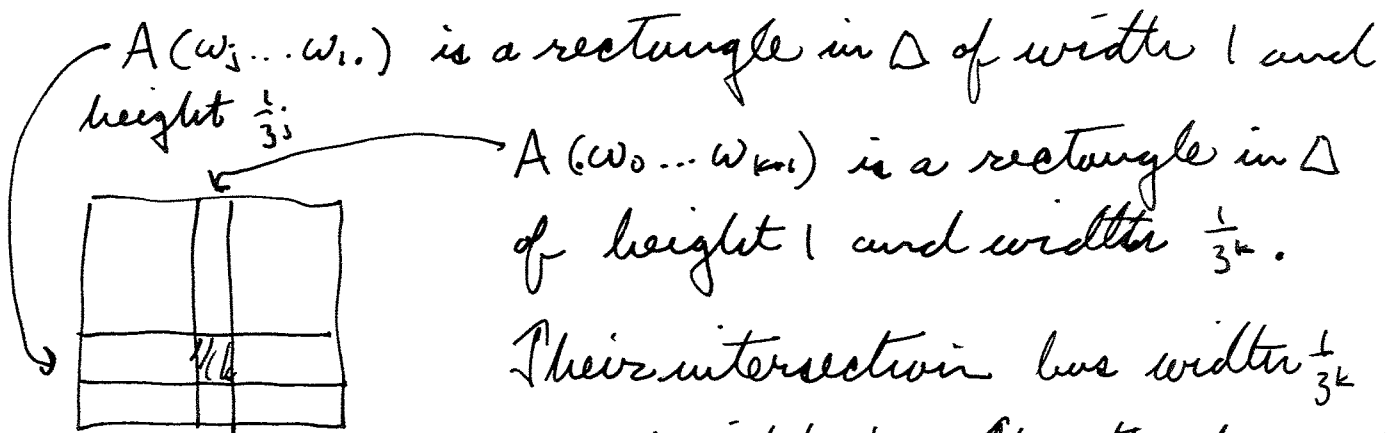 A(ω_j...ω_1.) is a rectangle in Δ of width 1 and
height 1/3^j
A(.ω_0...ω_{k-1}) is a rectangle in Δ
of height 1 and width 1/3^k.
Their intersection has width 1/3^k